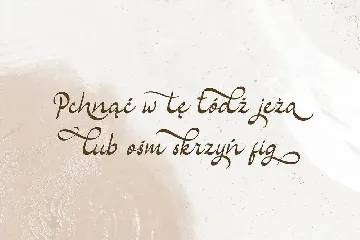 Pchnąć w tę łódź jeża
lub ośm skrzyń fig